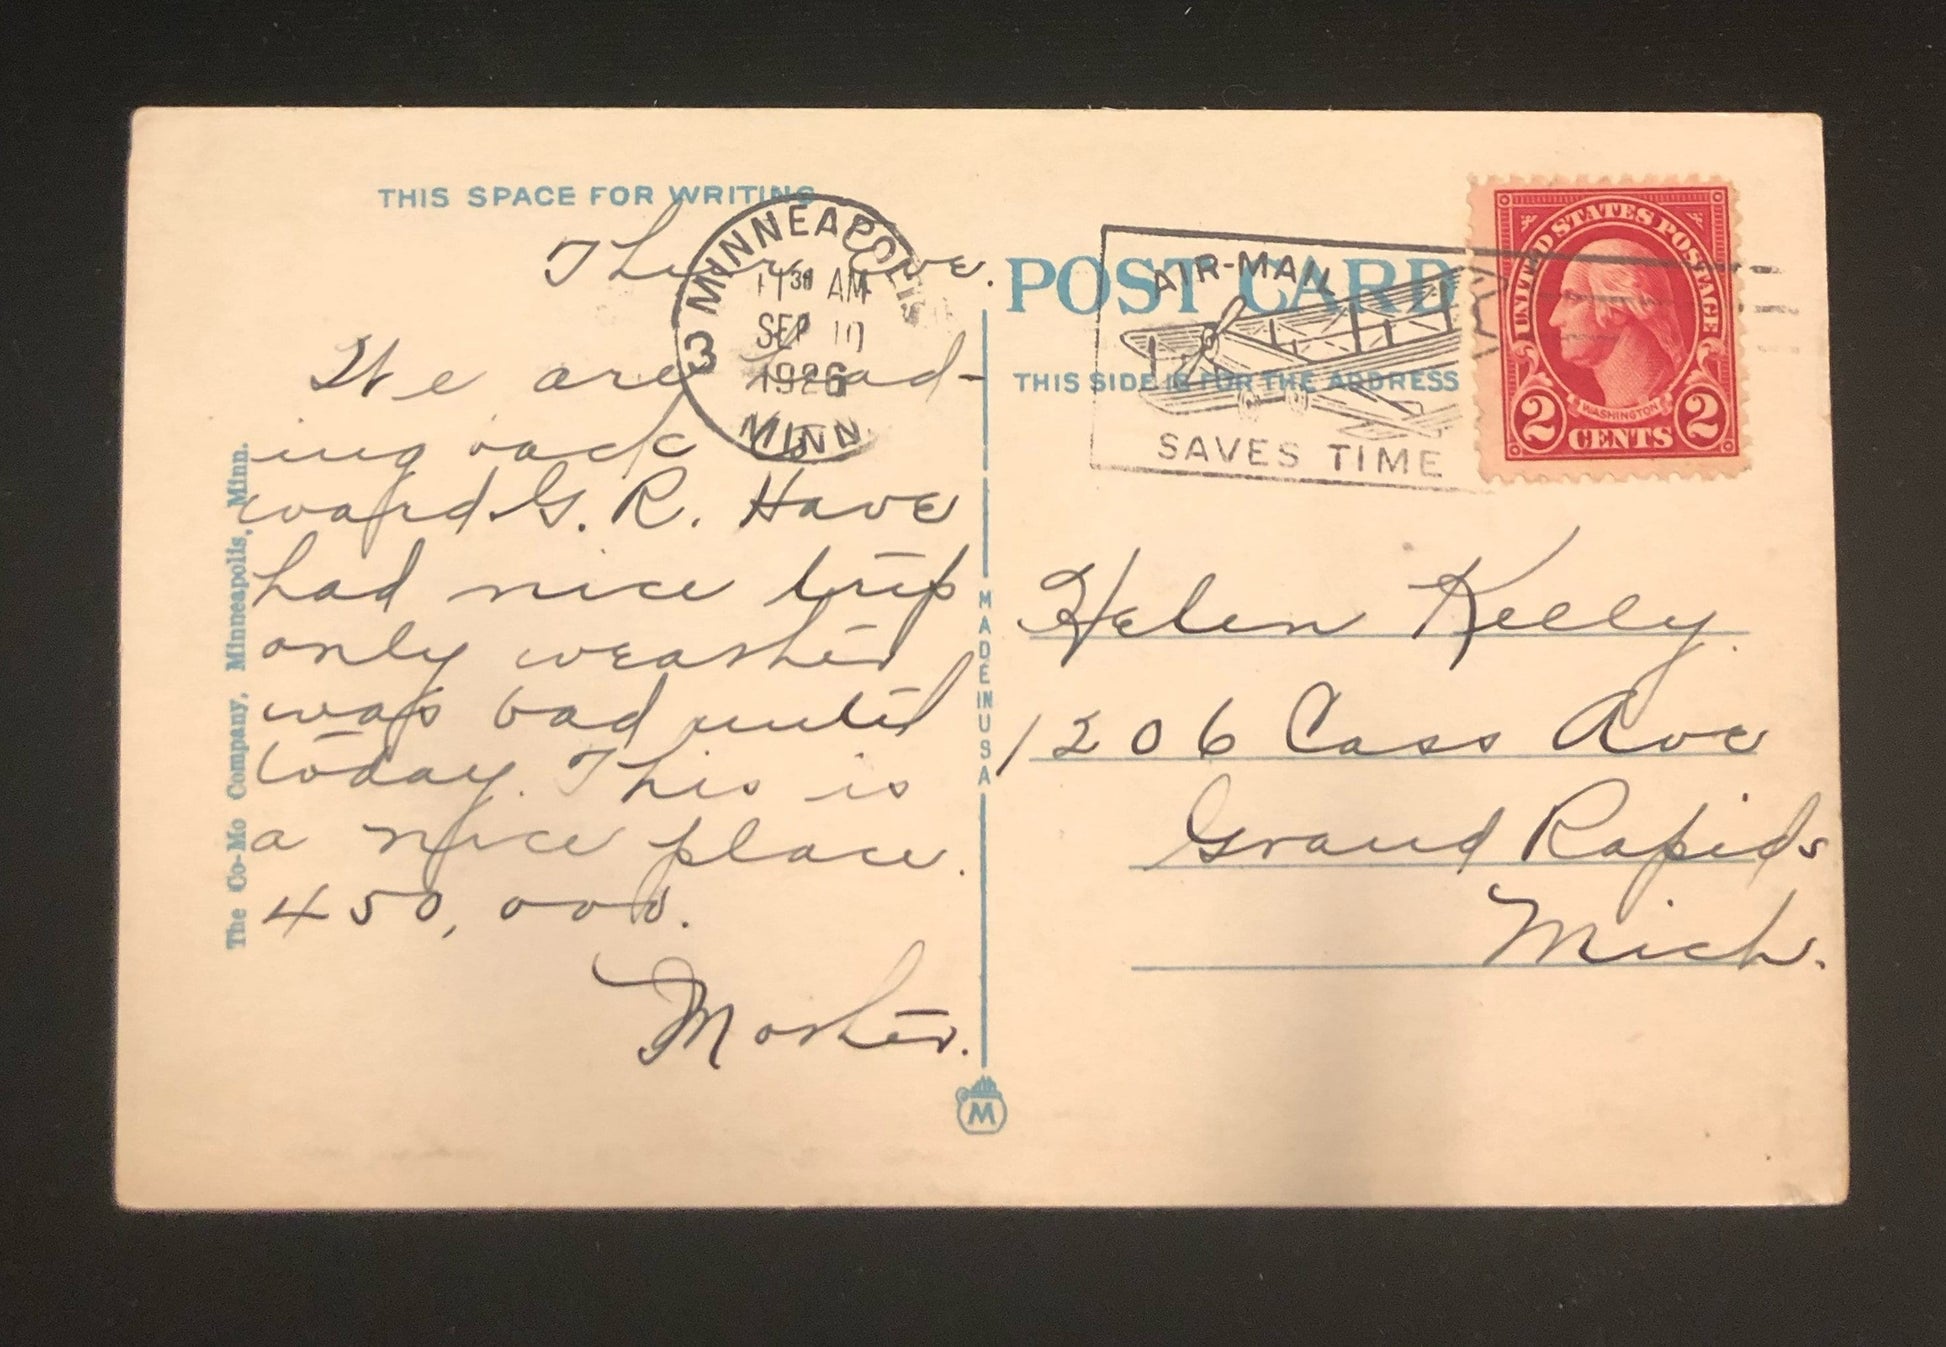 THIS SPACE FOR WRITING
Thurs. eve.
We are head-
ing back to-
ward G. R. Have
had nice trip
only weather
was bad until
today. This is
a nice place.
450,000.
Mother.
The Co-Mo Company, Minneapolis, Minn.
MINNEAPOLIS
3
11 30 AM
SEP
1926
MINN.
MADE IN USA
M
POST CARD
THIS SIDE IS FOR THE ADDRESS
AIR-MAIL
SAVES TIME
UNITED STATES POSTAGE
WASHINGTON
2 CENTS 2
Helen Kelly.
1206 Cass Ave
Grand Rapids
Mich.